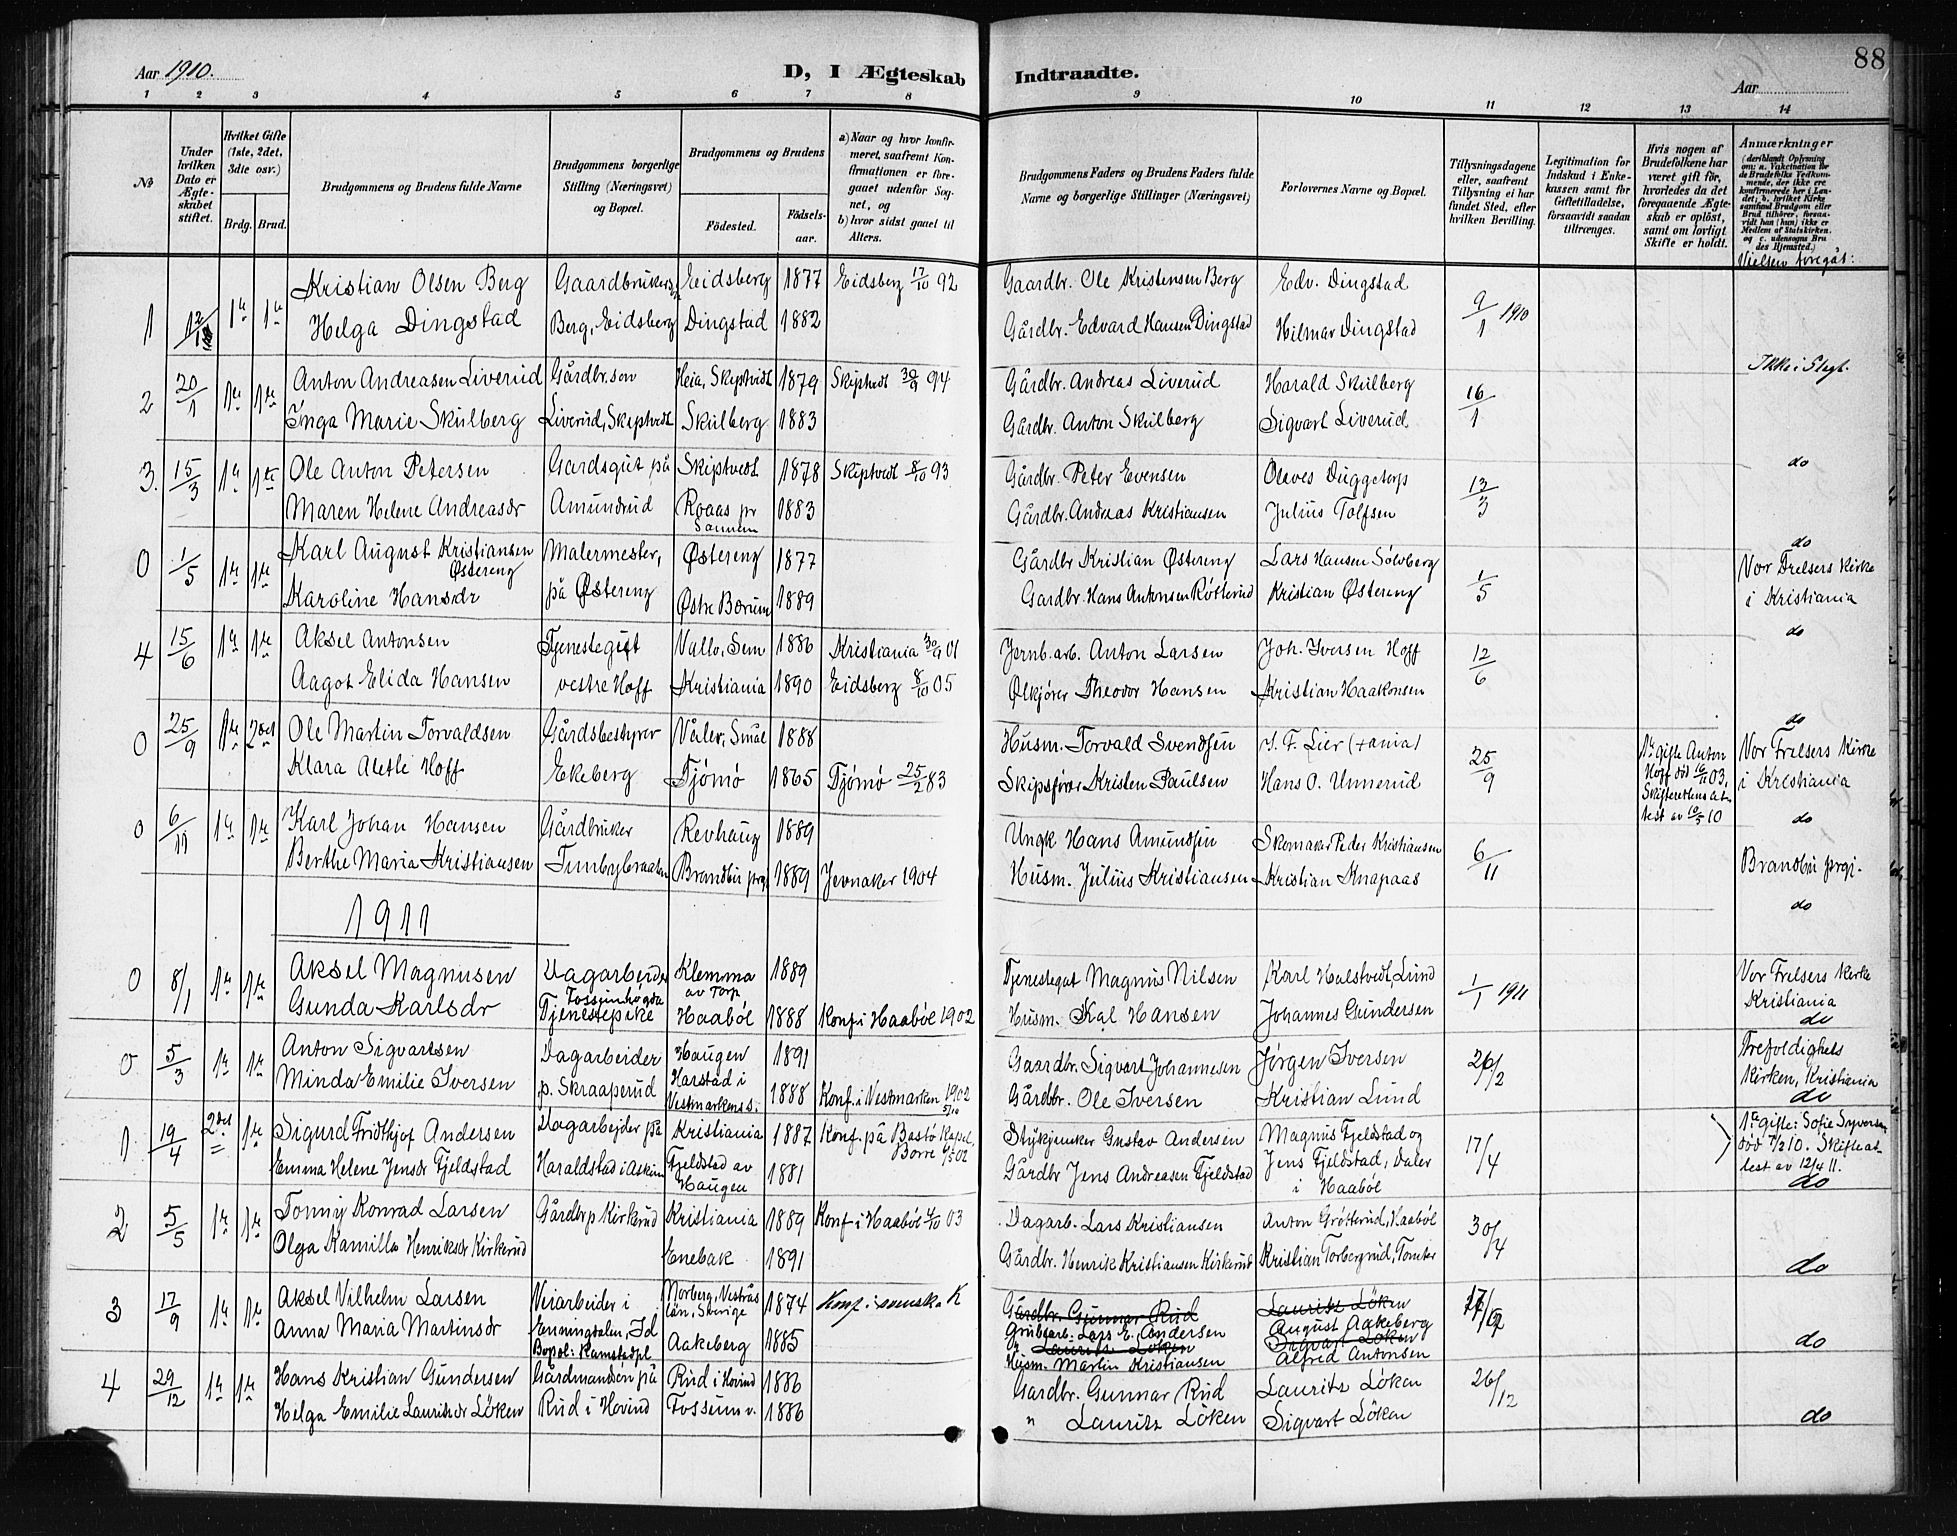 Aar 1910.
D, I Ægteskab Indtraadte.
88
Aar
1 2 3 4 5 6 7 8 9 10 11 12 13 14
No
Under hvilken Dato er Ægteskabet stiftet.
Hvilket Gifte (1ste, 2det, 3die osv.)
Brdg. Brud.
Brudgommens og Brudens fulde Navne
Brudgommens borgerlige Stilling (Næringsvei) og Bopæl.
Brudgommens og Brudens
Fødested.
Fødsels-aar.
a) Naar og hvor konfirmeret, saafremt Konfirmationen er foregaaet udenfor Sognet, og
b) hvor sidst gaaet til Alters.
Brudgommens Faders og Brudens Faders fulde Navne og borgerlige Stillinger (Næringsvei)
Forlovernes Navne og Bopæl.
Tillysningsdagene eller, saafremt Tillysning ei har fundet Sted, efter hvilken Bevilling.
Legitimation for Indskud i Enkekassen samt for Giftetilladelse, forsaavidt saadan tiltrænges.
Hvis nogen af Brudefolkene har været gift før, hvorledes da det foregaaende Ægteskab er opløst, samt om lovligt Skifte er holdt.
Anmærkninger
(deriblandt Oplysning om: a. Vaccination for de Brudefolks Vedkommende, der ikke ere konfirmerede her i Landet; b. hvilket Kirkesamfund Brudgom eller Brud tilhører, forsaavidt han (hun) ikke er Medlem af Statskirken, og c. udensogns Brudes Hjemsted.)
Vielsen foregåt:
1 12/1 1ste 1ste Kristian Olsen Berg Gaardbruker Eidsberg 1877 Eidsberg 17/10 92 Gaardbr. Ole Kristensen Berg Edv. Dingstad 9/1 1910
Helga Dingstad Berg, Eidsberg Dingstad 1882 Gårdbr. Edvard Hansen Dingstad Hilmar Dingstad
Ikke i Slegt.
2 20/1 1ste 1ste Anton Andreasen Liverud Gårdbr.søn Heia, Skiptvedt 1879 Skiptvedt 30/9 94 Gårdbr. Andreas Liverud Harald Skulberg 16/1
Inga Marie Skulberg Liverud, Skiptvedt Skulberg 1883 Gårdbr. Anton Skulberg Sigvart Liverud
do
3. 15/3 1ste 1ste Ole Anton Petersen Gardsgut på Skiptvedt 1878 Skiptvedt 8/10 93 Gårdbr. Peter Evensen Olaves Duggetorp 13/3
Maren Helene Andreasdr Amundrud Roaas pr Sannem 1883 Gårdbr. Andreas Kristiansen Julius Tolfsen
do
0 1/5 1ste 1ste Karl August Kristiansen Østereng Malermester, Østereng 1877 Gårdbr Kristian Østereng Lars Hansen Sølvberg 1/5 Vor Frelsers Kirke
Karoline Hansdr på Østereng Østre Bærum 1889 Gardbr. Hans Antonsen Røtterud Kristian Østereng i Kristiania
do
4 15/6 1ste 1ste Aksel Antonsen Tjenestegut Vallø, Sem 1886 Kristiania 30/9 01 Jernb.arb. Anton Larsen Joh. Iversen Hoff 12/6
Aagot Elida Hansen vestre Hoff Kristiania 1890 Eidsberg 8/10 05 Ølkjører Theodor Hansen Kristian Haakonsen
do
0 25/9 1ste 2det Ole Martin Torvaldsen Gårdsbestyrer Våler, Smål 1888 Husm. Torvald Svendsen S. F. Lier (+ania) 25/9 1ste gifte Anton Hoff død 16/11 03, Skifterettens attest av 10/5 10 Vor Frelsers Kirke
Klara Aletle Hoff Ekeberg Tjømø 1865 Tjømø 25/2 83 Skipsfører Kristen Paulsen Hans O. Unnerud i Kristiania
do
0 6/11 1ste 1ste Karl Johan Hansen Gårdbruker Revhaug 1889 Ungk Hans Amundsen Skomaker Peder Kristiansen 6/11
Berthe Maria Kristiansen Tunbybraaten Brandbu prgj. 1889 Jevnaker 1904 Husm. Julius Kristiansen Kristian Knapaas Brandbu prgj.
do
1911
0 8/1 1ste 1ste Aksel Magnusen Dagarbeider Klemma av Torp 1889 Tjenestegut Magnus Nilsen Karl Halstvedt, Lund 1/1 1911 Vor Frelsers Kirke
Gunda Karlsdr Fossumhøgda Tjenestepike Haabøl 1888 Konf. i Haabøl 1902 Husm. Kal Hansen Johannes Gundersen Kristiania
do
0 5/3 1ste 1ste Anton Sigvartsen Dagarbeider Haugen 1891 Gaardbr. Sigvart Johannesen Jørgen Iversen 26/2 Trefoldighets
Minda Emilie Iversen p. Skraaperud Harstad i Vestmarken s. 1888 Konf. i Vestmarken 1902 Gårdbr. Ole Iversen Kristian Lund Kirken, Kristiania
do
1 19/4 2det 1ste Sigurd Fridthjof Andersen Dagarbejder på Kristiania 1887 Konf på Bastø Kapel, Borre 5/10 02 Stykjunker Gustav Andersen Magnus Fjeldstad og 17/4 1ste gifte: Sofie Syversen død 7/2 10. Skifteattest av 12/4 11.
Emma Helene Jensdr Fjeldstad Haraldstad i Askim Fjeldstad av Haugen 1881 Gårdbr Jens Andreasen Fjeldstad Jens Fjeldstad, Daler i Haabøl
do
2 5/5 1ste 1ste Tonny Konrad Larsen Gårdbr p Kirkerud Kristiania 1889 Konf i Haabøl 4/10 03 Dagarb. Lars Kristiansen Anton Grøtterud, Haabøl 30/4
Olga Kamilla Henriksdr Kirkerud Enebak 1891 Gårdbr. Henrik Kristiansen Kirkerud Kristian Torbergrud, Tomter
do
3 17/9 1ste 1ste Aksel Vilhelm Larsen Veiarbeider i Norberg, Vestrås län, Sverige 1874 Konf i svenska K Gårdbr. Gunnar Rud Lauritz Løken 17/9
Grubearb. Lars E. Andersen August Aakeberg
Anna Maria Martinsdr Enningdalen, Id Bopæl: Kamstedpl Aakeberg 1885 Lauritz Løken Sigvart Løken
Husm. Martin Kristiansen Alfred Antonsen
do
4 29/12 1ste 1ste Hans Kristian Gundersen Gårdmandsøn på Rud i Hovind 1886 Gardbr. Gunnar Rud Lauritz Løken 26/12
Helga Emilie Lauritsdr Løken Rud i Hovind Fossum v. 1886 " Lauritz Løken Sigvart Løken
do